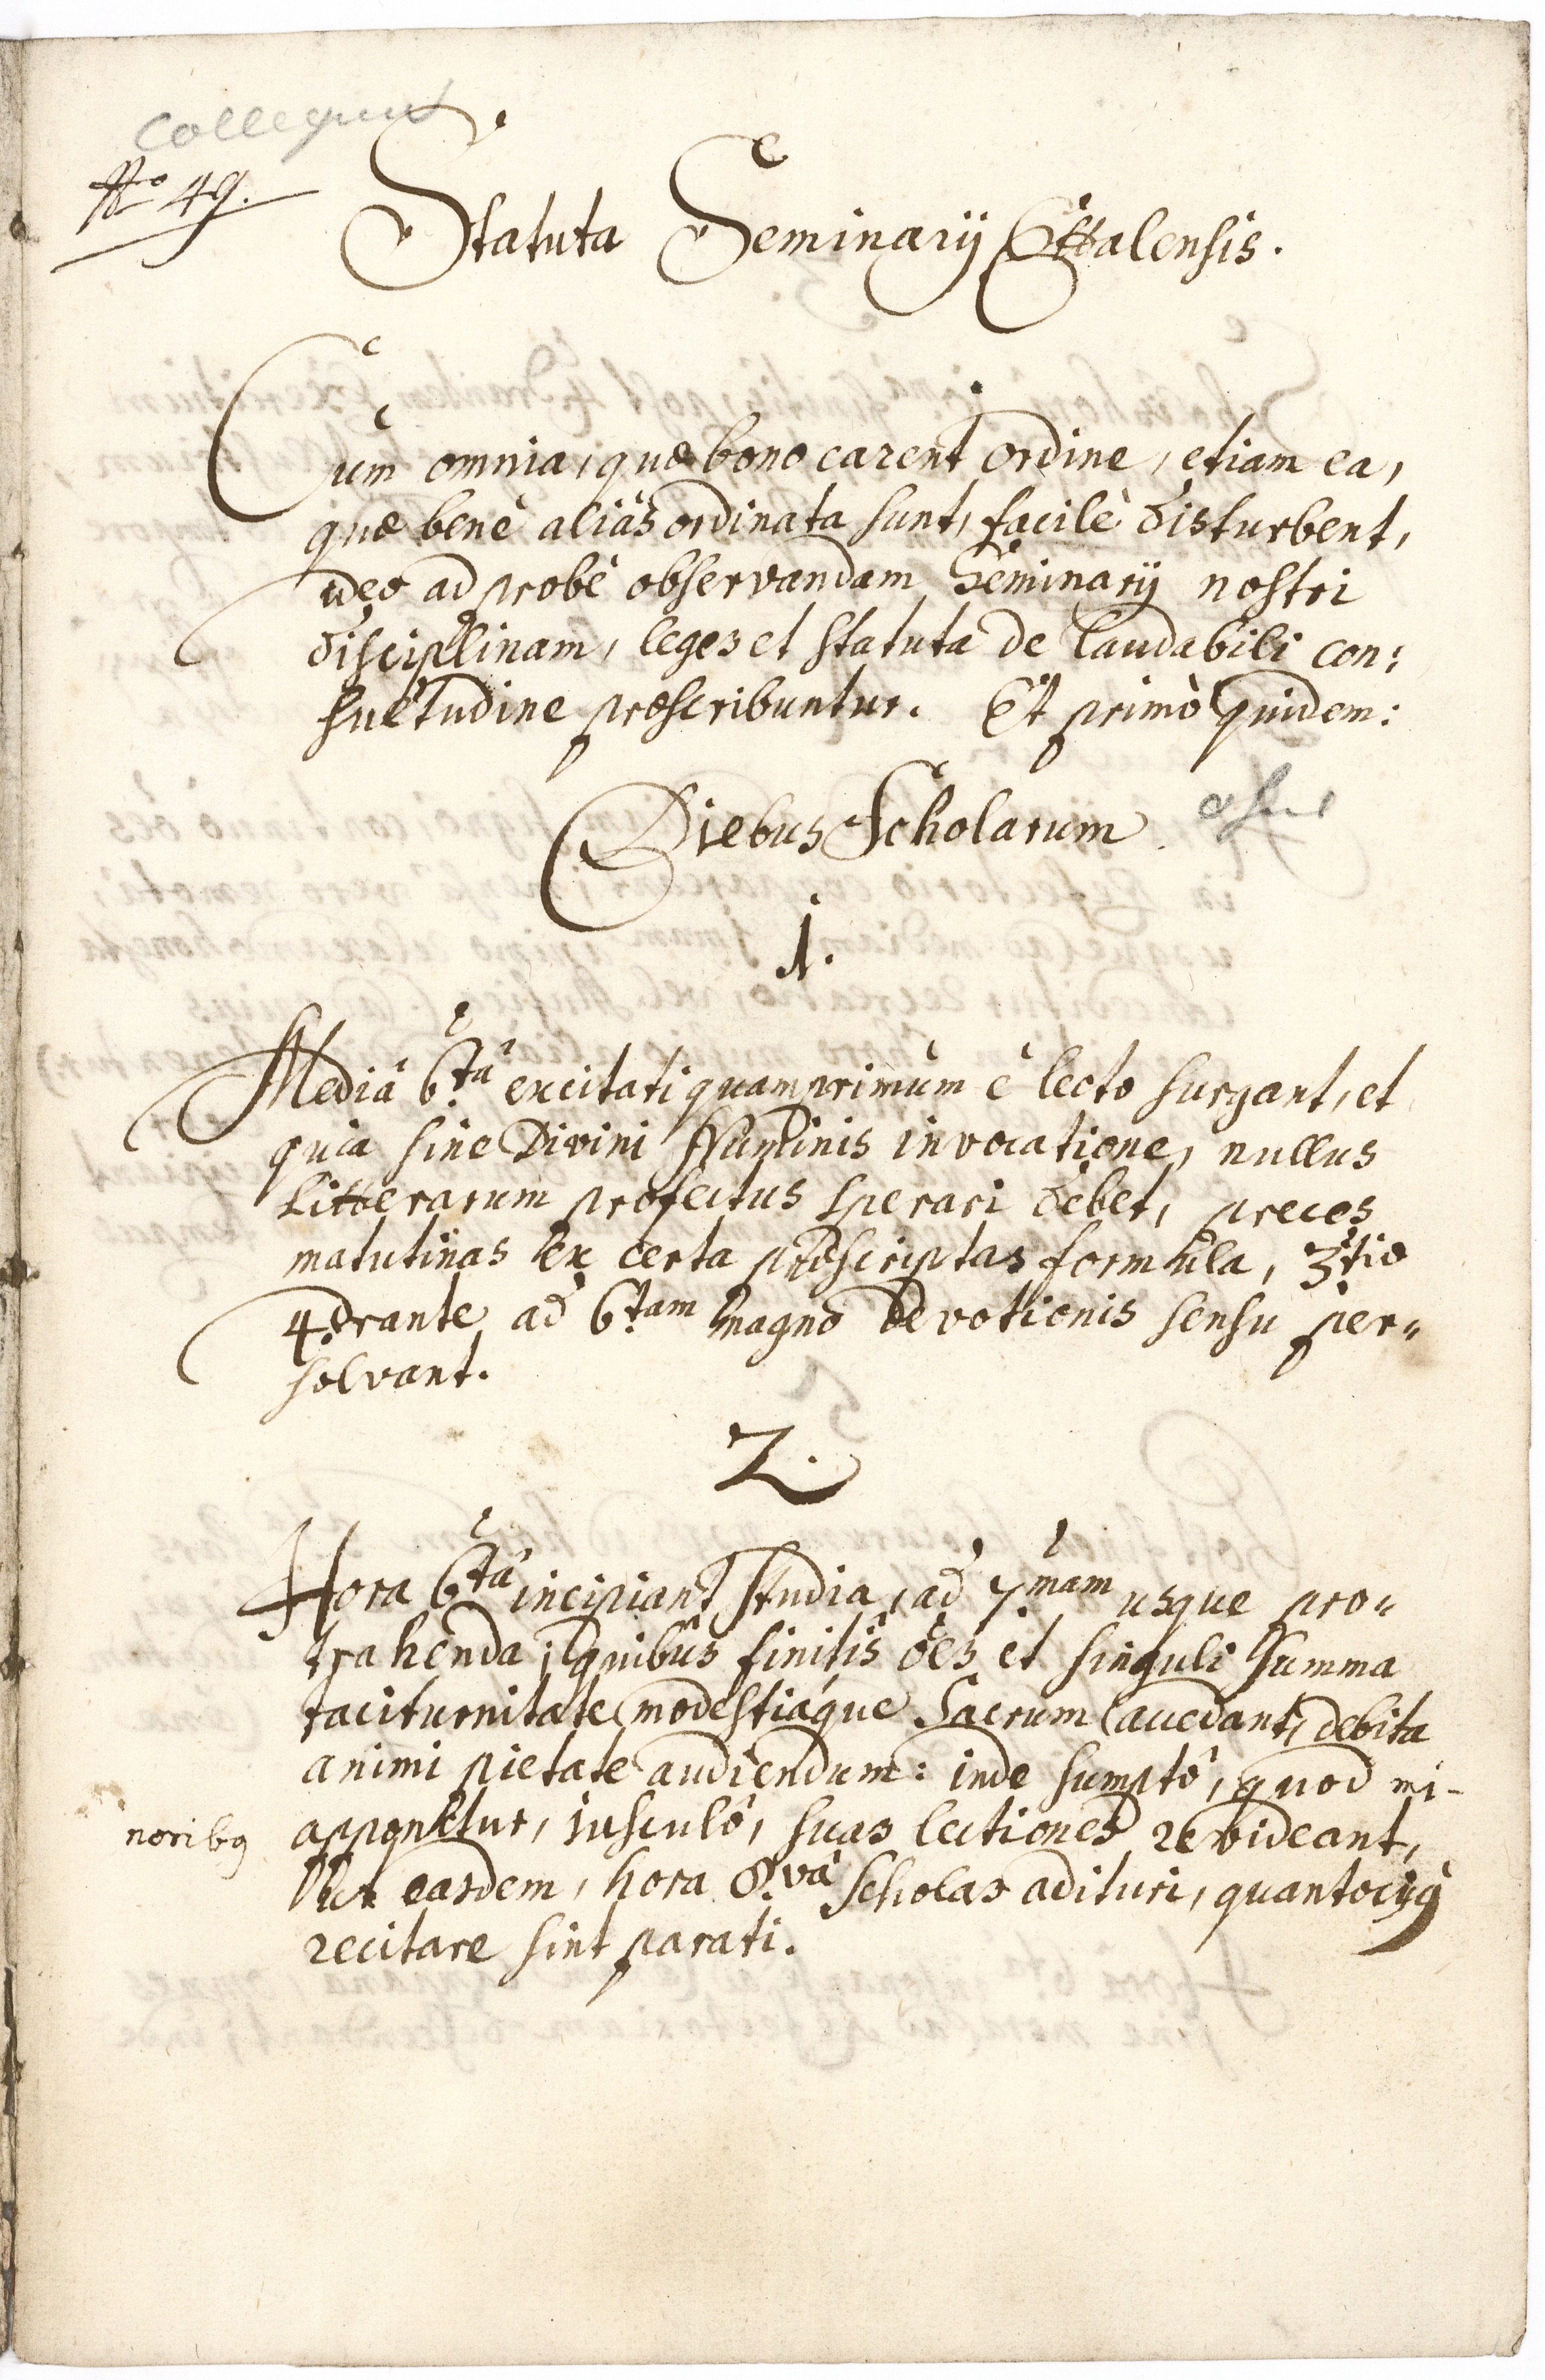 Collegium
No 49.
Statuta Seminarij Ettalensis.
Cum omnia, quæ bono carent ordine, etiam ea,
quæ benè aliàs ordinata sunt, facilè disturbent,
ideo ad probè observandam Seminarij nostri
disciplinam, leges et statuta de laudabili con:
suetudine præscribuntur. Et primò quidem:
Diebus Scholarum.
1.
Mediâ 6.tâ excitati quamprimùm è lecto surgant, et
quia sine Divini Numinis invocatione, nullus
Litterarum profectus sperari debet, preces
matutinas ex certa præscriptas formula, 3.tio
4.drante ad 6.tam magno devotionis sensu per„
solvant.
2.
Hora 6.tâ incipiant studia, ad 7.mam usque pro„
trahenda; quibus finitis oẽs et singuli summa
taciturnitate modestiáque Sacrum accedant, debita
animi pietate audiendum: inde sumptô, quod mi-
noribꝯ apponetur, iusculô, suas lectiones revideant,
ut easdem, hora 8.vâ Scholas adituri, quantocijꝯ
recitare sint parati.